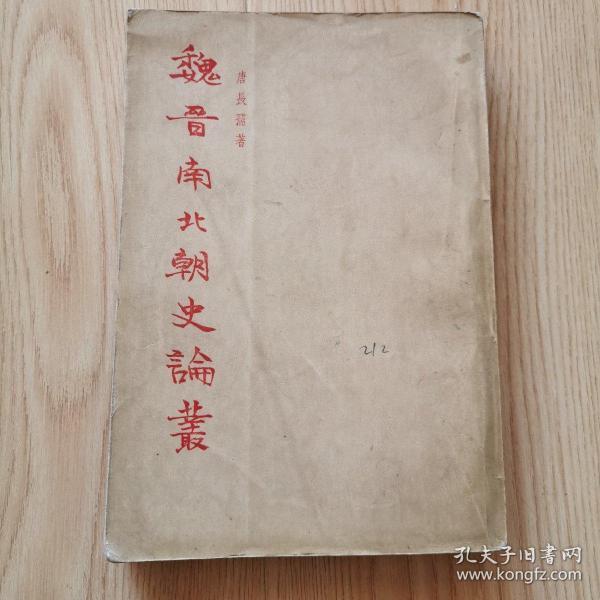 魏晋南北朝史論叢
唐長孺著
212
孔夫子旧書网
www.kongfz.com